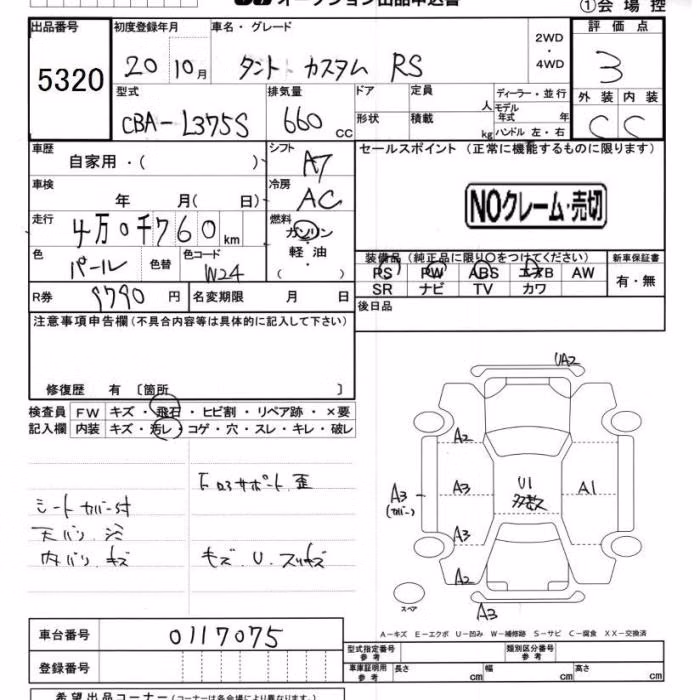 オークション出品申込書
①会場控
出品番号 初度登録年月 車名・グレード 2WD・4WD 評価点
5320 20 10月 タント カスタム RS 3
型式 排気量 ドア 定員 人 ディーラー・並行 外装 内装
CBA-L375S 660 cc 形状 積載 kg モデル年式 年 ハンドル 左・右 C C
車歴 自家用・( ) シフト A7 セールスポイント (正常に機能するものに限ります)
車検 年 月(日) 冷房 AC NOクレーム・売切
走行 4万0千760km 燃料 ガソリン・軽油・( )
色 パール 色替 色コード W24
装備品 (純正品に限り○をつけてください) 新車保証書
PS PW ABS エアB AW 有・無
SR ナビ TV カワ
R券 9790円 名変期限 月 日 後日品
注意事項申告欄 (不具合内容等は具体的に記入して下さい)
修復歴 有 〔箇所 〕
検査員 FW キズ・飛石・ヒビ割・リペア跡・×要
記入欄 内装 キズ・汚レ・コゲ・穴・スレ・キレ・破レ
シートカバー付
内バリ キズ
キズ U
UA2
A2
A3 A3 (カバー) U1 A1
A3
A2
スペア
A3
A-キズ E-エクボ U-凹み W-補修跡 S-サビ C-腐食 XX-交換済
車台番号 0117075
登録番号
型式指定番号 参考 類別区分番号 参考
車庫証明用 参考 長さ cm 幅 cm 高さ cm
希望出品コーナー (コーナーは各会場により異なります。)